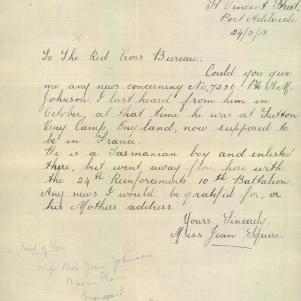 St Vincent Street
Port Adelaide
24/2/18
To The Red Cross Bureau.
Could you give
me any news concerning No. 7256 Pte A.M.
Johnson. I last heard from him in
October, at that time he was at Sutton
Veny Camp, England, now supposed to
be in France.
He is a Tasmanian boy and enlisted
there, but went away from here with
the 24th Reinforcements 10th Battalion.
Any news I would be grateful for, or
his Mothers address.
Yours Sincerely,
Miss Jean Squire.
Jean Johnson